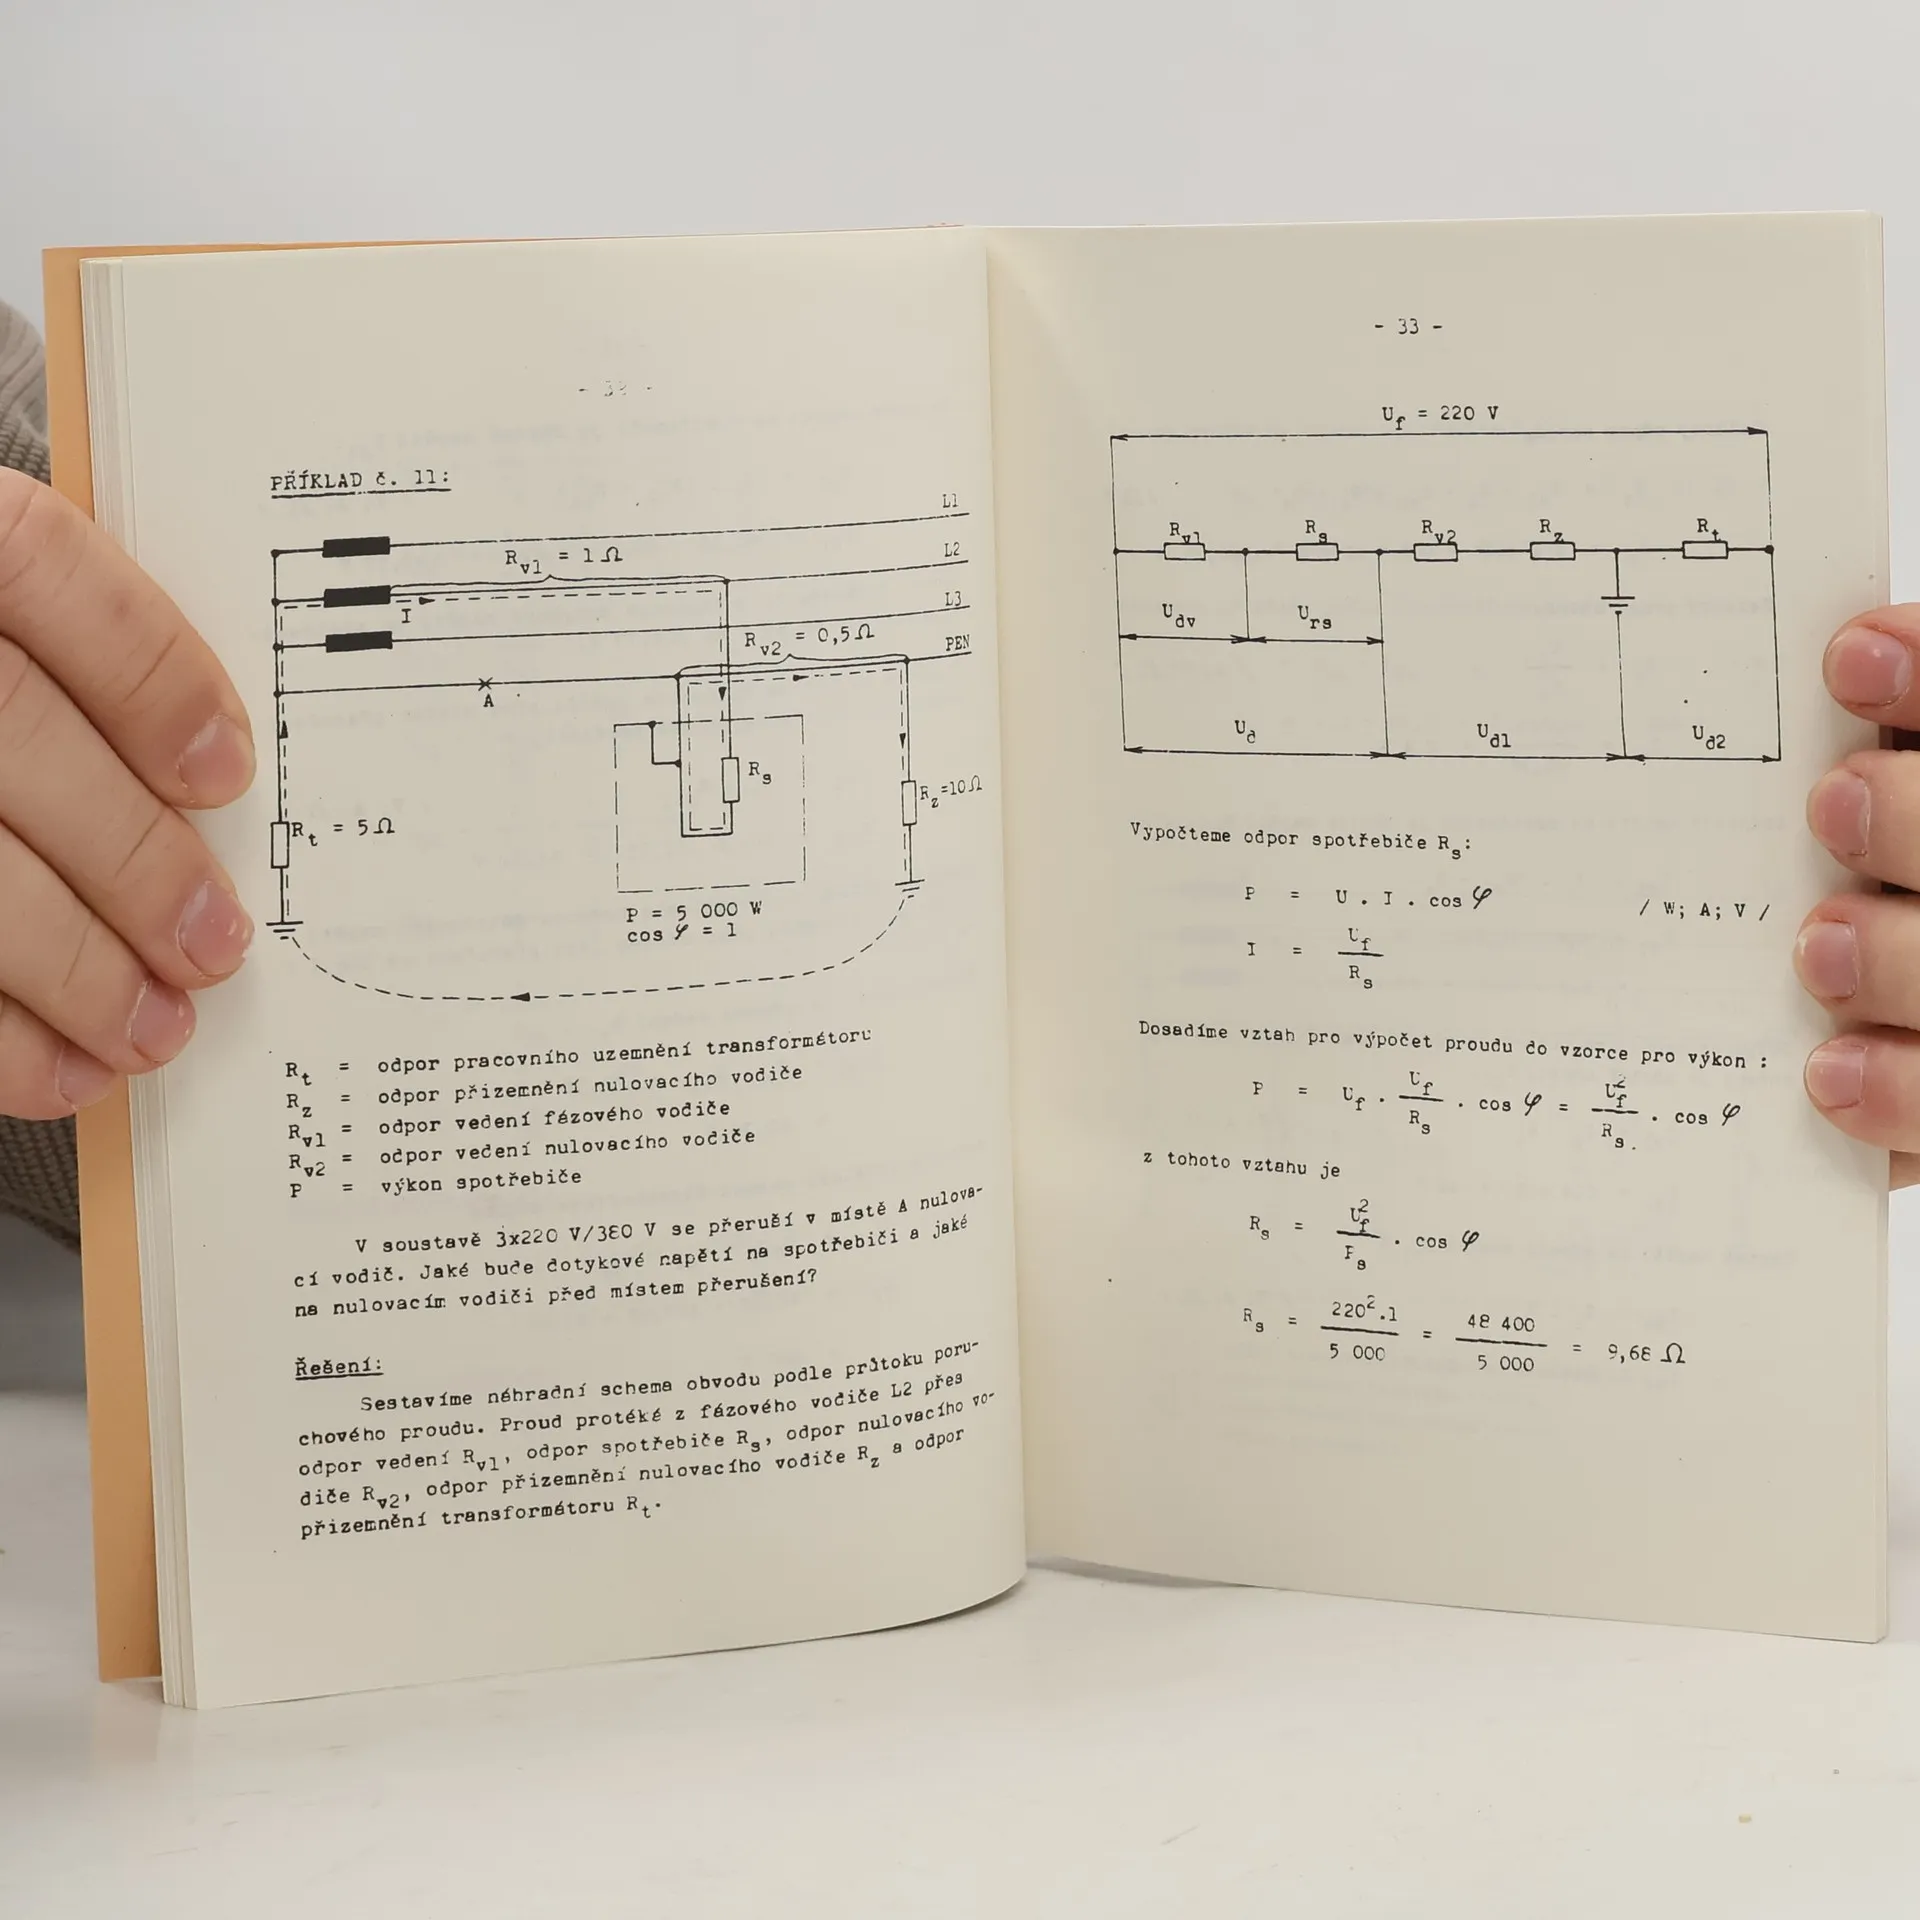 PŘÍKLAD č. 11:
L1
R_v1 = 1 Ω
L2
I
L3
R_v2 = 0,5 Ω
PEN
A
R_s
R_z=10Ω
R_t = 5Ω
P = 5 000 W
cos φ = 1
R_t = odpor pracovního uzemnění transformátoru
R_z = odpor přizemnění nulovacího vodiče
R_v1 = odpor vedení fázového vodiče
R_v2 = odpor vedení nulovacího vodiče
P = výkon spotřebiče
V soustavě 3x220 V/380 V se přeruší v místě A nulova-
cí vodič. Jaké bude dotykové napětí na spotřebiči a jaké
na nulovacím vodiči před místem přerušení?
Řešení:
Sestavíme náhradní schema obvodu podle průtoku poru-
chového proudu. Proud protéká z fázového vodiče L2 přes
odpor vedení R_v1, odpor spotřebiče R_s, odpor nulovacího vo-
diče R_v2, odpor přizemnění nulovacího vodiče R_z a odpor
přizemnění transformátoru R_t.
- 33 -
U_f = 220 V
R_v1 R_s R_v2 R_z R_t
U_dv U_rs
U_d U_d1 U_d2
Vypočteme odpor spotřebiče R_s:
P = U . I . cos φ / W; A; V /
I = U_f / R_s
Dosadíme vztah pro výpočet proudu do vzorce pro výkon :
P = U_f . U_f / R_s . cos φ = U_f² / R_s . cos φ
z tohoto vztahu je
R_s = U_f² / P_s . cos φ
R_s = 220².1 / 5 000 = 48 400 / 5 000 = 9,68 Ω